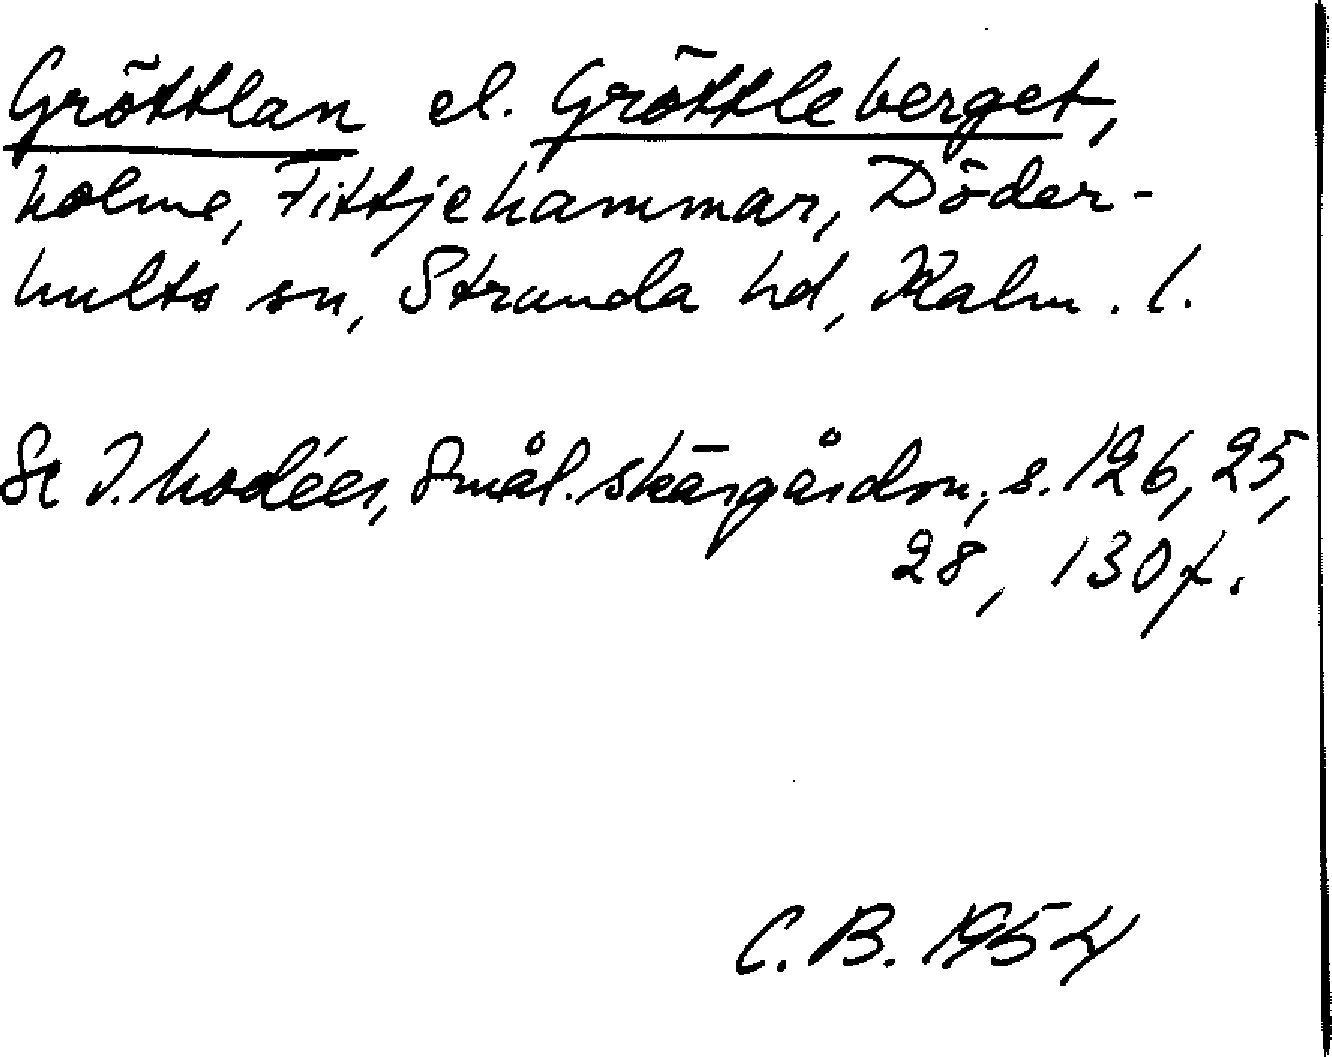 Gröttlan el. Gröttleberget,
holme, Fittjehammar, Döder-
hults sn, Stranda hd, Kalm. l.
Se I. Modéer, Smål. skärgårdsn., s. 126, 25,
28, 130 f.
C. B. 1954